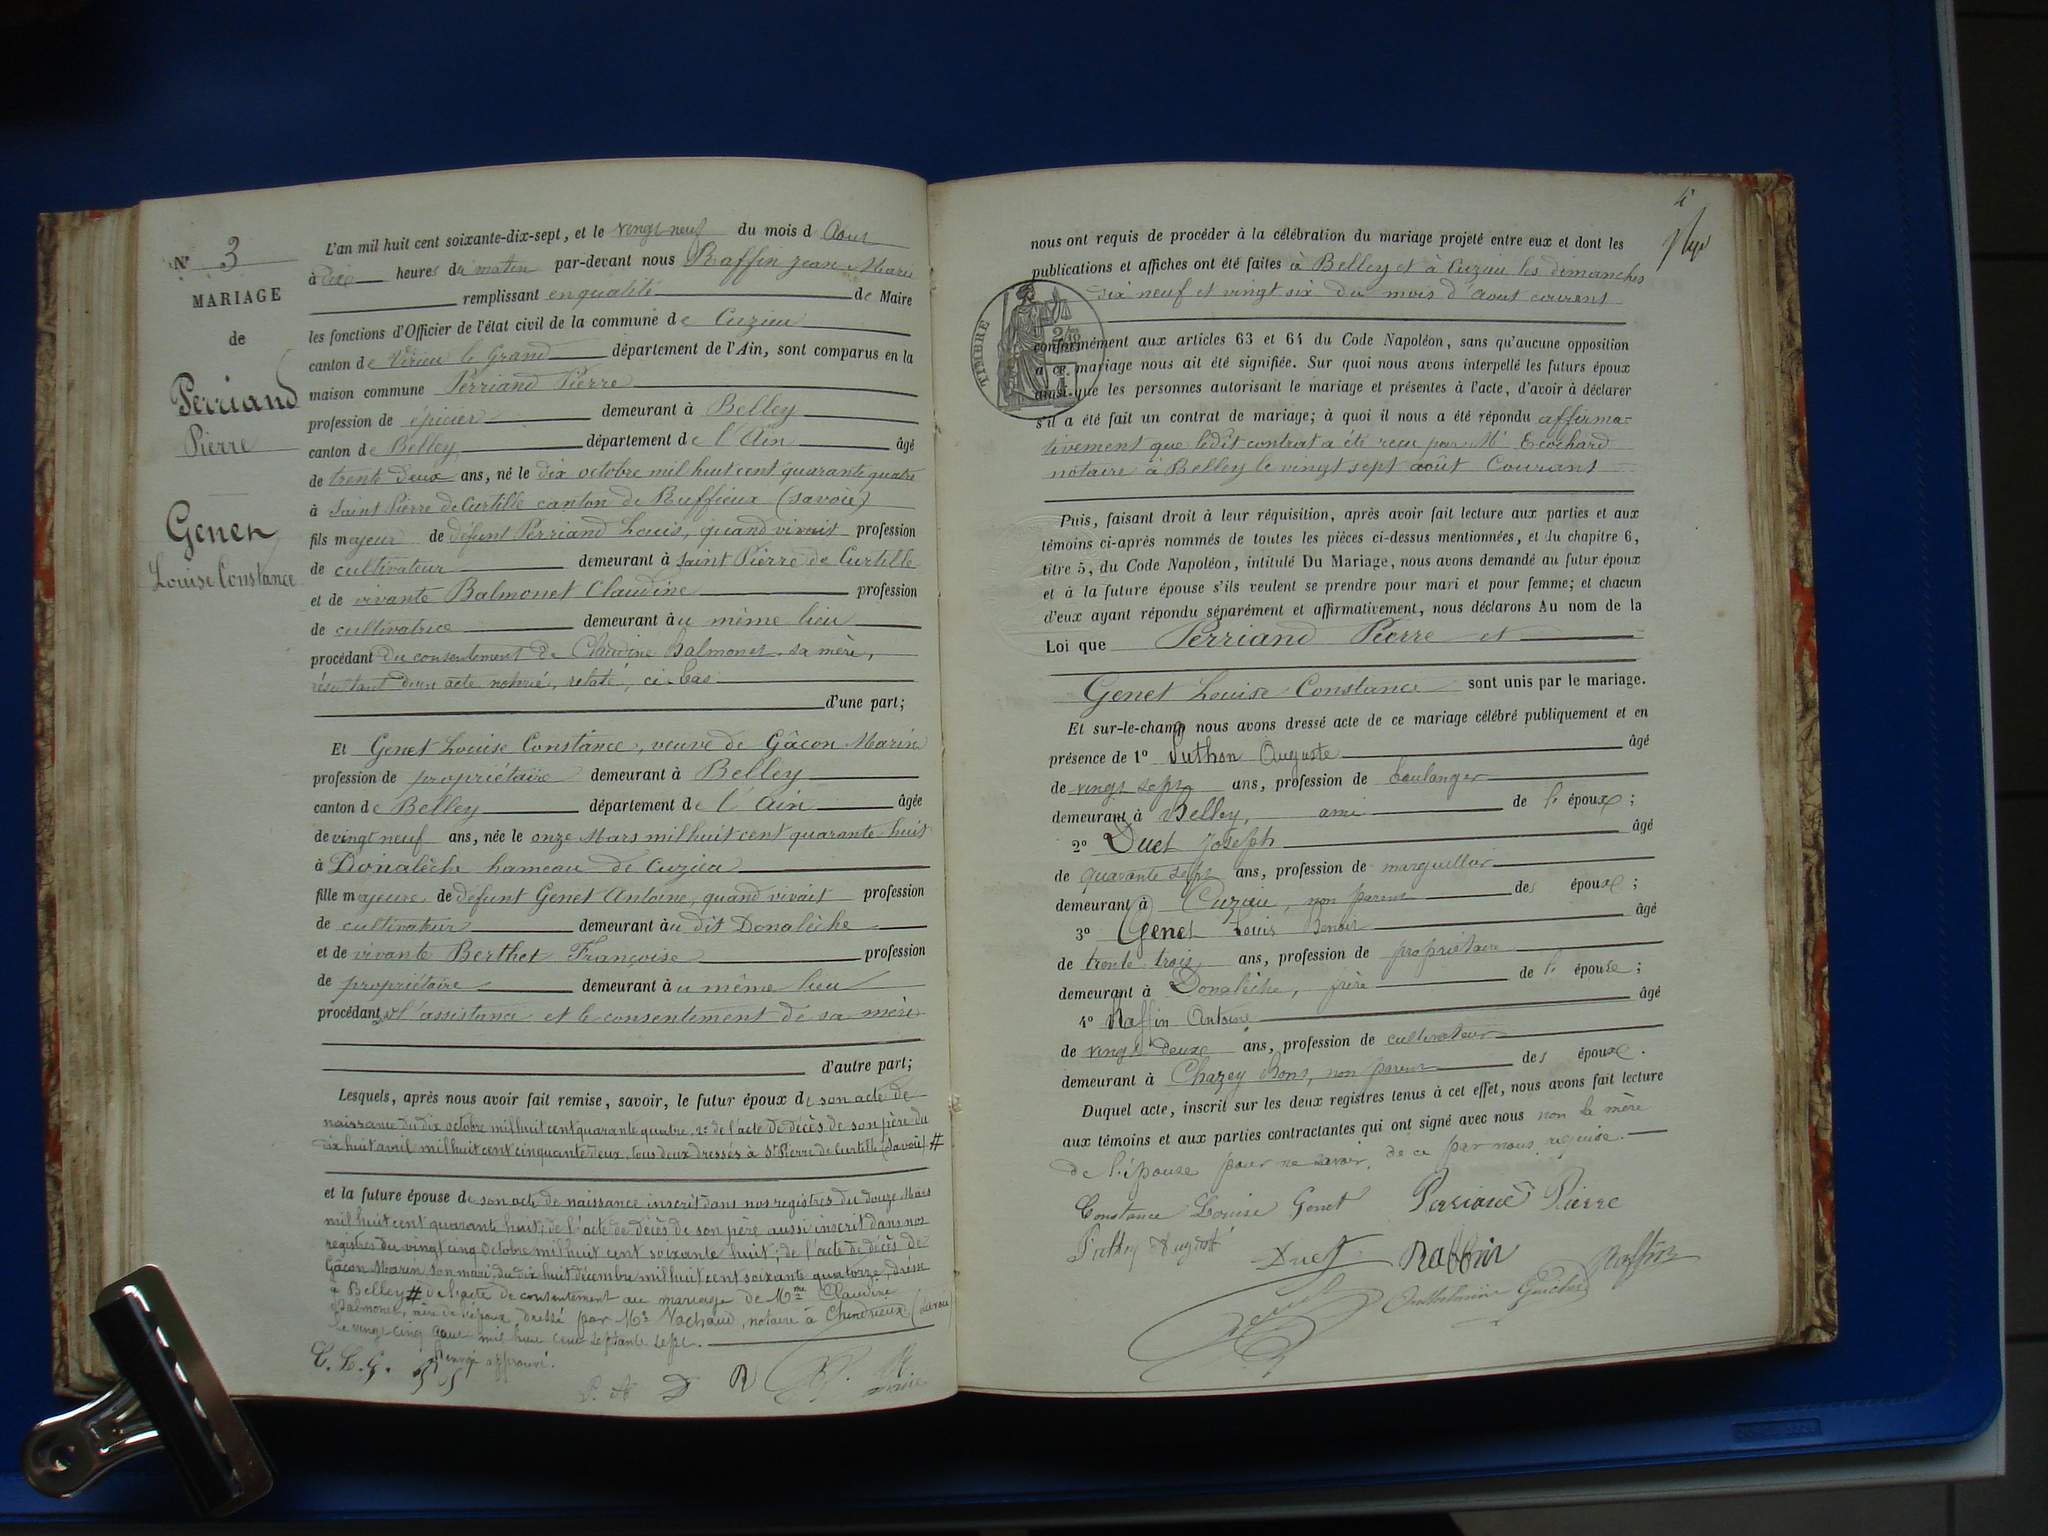 N° 3
MARIAGE
de
Perriand
Pierre
Genet
Louise Constance
L'an mil huit cent soixante-dix-sept, et le vingt neuf du mois d'Aout
à dix heures du matin par-devant nous Raffin jean Marie
remplissant en qualité de Maire
les fonctions d'Officier de l'état civil de la commune de Cuzieu
canton de Virieu le Grand département de l'Ain, sont comparus en la
maison commune Perriand Pierre
profession de épicier demeurant à Belley
canton de Belley département de l'Ain âgé
de trente deux ans, né le dix octobre mil huit cent quarante quatre
à Saint Pierre de Curtille canton de Ruffieux (Savoie)
fils majeur de défunt Perriand Louis, quand vivait profession
de cultivateur demeurant à Saint Pierre de Curtille
et de vivante Balmonet Claudine profession
de cultivatrice demeurant au même lieu
procédant du consentement de Claudine Balmonet sa mère,
résultant d'un acte notarié, relaté, ci-bas
d'une part;
Et Genet Louise Constance, veuve de Gâcon Marin
profession de propriétaire demeurant à Belley
canton de Belley département de l'Ain âgée
de vingt neuf ans, née le onze Mars mil huit cent quarante huit
à Donalèche hameau de Cuzieu
fille majeure de défunt Genet Antoine, quand vivait profession
de cultivateur demeurant au dit Donalèche
et de vivante Berthet Françoise profession
de propriétaire demeurant au même lieu
procédant l'assistance et le consentement de sa mère
d'autre part;
Lesquels, après nous avoir fait remise, savoir, le futur époux de son acte de
naissance du dix octobre mil huit cent quarante quatre, 2° de l'acte de décès de son père du
dix huit avril mil huit cent cinquante deux, tous deux dressés à St Pierre de Curtille (Savoie) #
et la future épouse de son acte de naissance inscrit dans nos registres du douze Mars
mil huit cent quarante huit; de l'acte de décès de son père aussi inscrit dans nos
registres du vingt cinq Octobre mil huit cent soixante huit; de l'acte de décès de
Gâcon Marin son mari, du dix huit décembre mil huit cent soixante quatorze, dressé
à Belley # de l'acte de consentement au mariage de Mme Claudine
Balmonet, mère de l'époux, dressé par Me Vachaud, notaire à Chindrieux (Savoie)
le vingt cinq aout mil huit cent septante sept.
renvoi approuvé.
C. L. G.
P. A D R
nous ont requis de procéder à la célébration du mariage projeté entre eux et dont les
publications et affiches ont été faites à Belley et à Cuzieu les dimanches
dix neuf et vingt six du mois d'aout courant
TIMBRE
conformément aux articles 63 et 64 du Code Napoléon, sans qu'aucune opposition
à ce mariage nous ait été signifiée. Sur quoi nous avons interpellé les futurs époux
ainsi que les personnes autorisant le mariage et présentes à l'acte, d'avoir à déclarer
s'il a été fait un contrat de mariage; à quoi il nous a été répondu affirma-
tivement que ledit contrat a été reçu par Me Ecochard
notaire à Belley le vingt sept août Courant
Puis, faisant droit à leur réquisition, après avoir fait lecture aux parties et aux
témoins ci-après nommés de toutes les pièces ci-dessus mentionnées, et du chapitre 6,
titre 5, du Code Napoléon, intitulé Du Mariage, nous avons demandé au futur époux
et à la future épouse s'ils veulent se prendre pour mari et pour femme; et chacun
d'eux ayant répondu séparément et affirmativement, nous déclarons Au nom de la
Loi que Perriand Pierre et
Genet Louise Constance sont unis par le mariage.
Et sur-le-champ nous avons dressé acte de ce mariage célébré publiquement et en
présence de 1° Puthon Auguste âgé
de vingt sept ans, profession de boulanger
demeurant à Belley, ami de l'époux;
2° Duet Joseph âgé
de quarante sept ans, profession de marguillier
demeurant à Cuzieu, non parent des époux;
3° Genet Louis Benoit âgé
de trente trois ans, profession de propriétaire
demeurant à Donalèche, frère de l'épouse;
4° Raffin Antoine âgé
de vingt deux ans, profession de cultivateur
demeurant à Chazey Bons, non parent des époux.
Duquel acte, inscrit sur les deux registres tenus à cet effet, nous avons fait lecture
aux témoins et aux parties contractantes qui ont signé avec nous non la mère
de l'épouse pour ne savoir, de ce par nous requise.
Constance Louise Genet Perriand Pierre
Duet Raffin Raffin